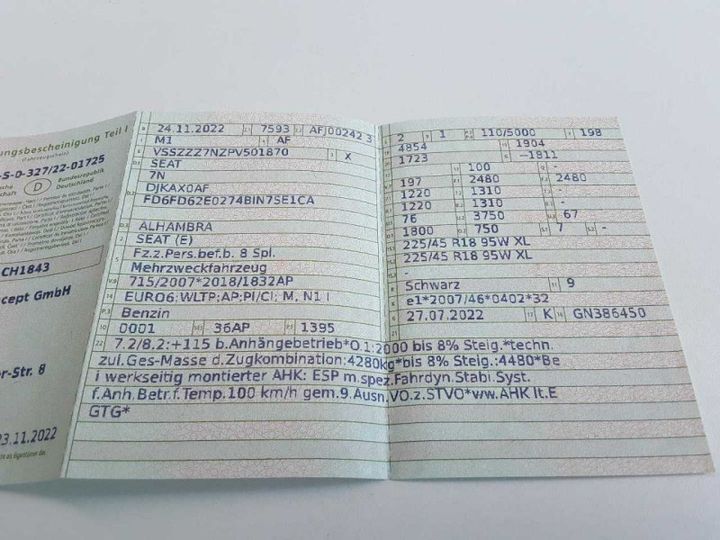 ungsbescheinigung Teil I
(Fahrzeugschein)
-S-0-327/22-01725
Bundesrepublik
Deutschland
D
CH1843
cept GmbH
er-Str. 8
23.11.2022
24.11.2022 7593 AFJ00242 3
M1 AF
VSSZZZ7NZPV501870 X
SEAT
7N
DJKAX0AF
FD6FD62E0274BIN7SE1CA
ALHAMBRA
SEAT (E)
Fz.z.Pers.bef.b. 8 Spl.
Mehrzweckfahrzeug
715/2007*2018/1832AP
EURO6;WLTP;AP;PI/CI; M, N1 I
Benzin
0001 36AP 1395
2 1 110/5000 198
4854 1904
1723 -1811
100 -
197 2480 2480
1220 1310 -
1220 1310 -
76 3750 67
1800 750 7 -
225/45 R18 95W XL
225/45 R18 95W XL
-
Schwarz 9
e1*2007/46*0402*32
27.07.2022 K GN386450
7.2/8.2:+115 b.Anhängebetrieb*O.1:2000 bis 8% Steig.*techn.
zul.Ges-Masse d.Zugkombination:4280kg*bis 8% Steig.:4480*Be
i werkseitig montierter AHK: ESP m.spez.Fahrdyn.Stabi.Syst.
f.Anh.Betr.f.Temp.100 km/h gem.9.Ausn.VO.z.STVO*ww.AHK lt.E
GTG*